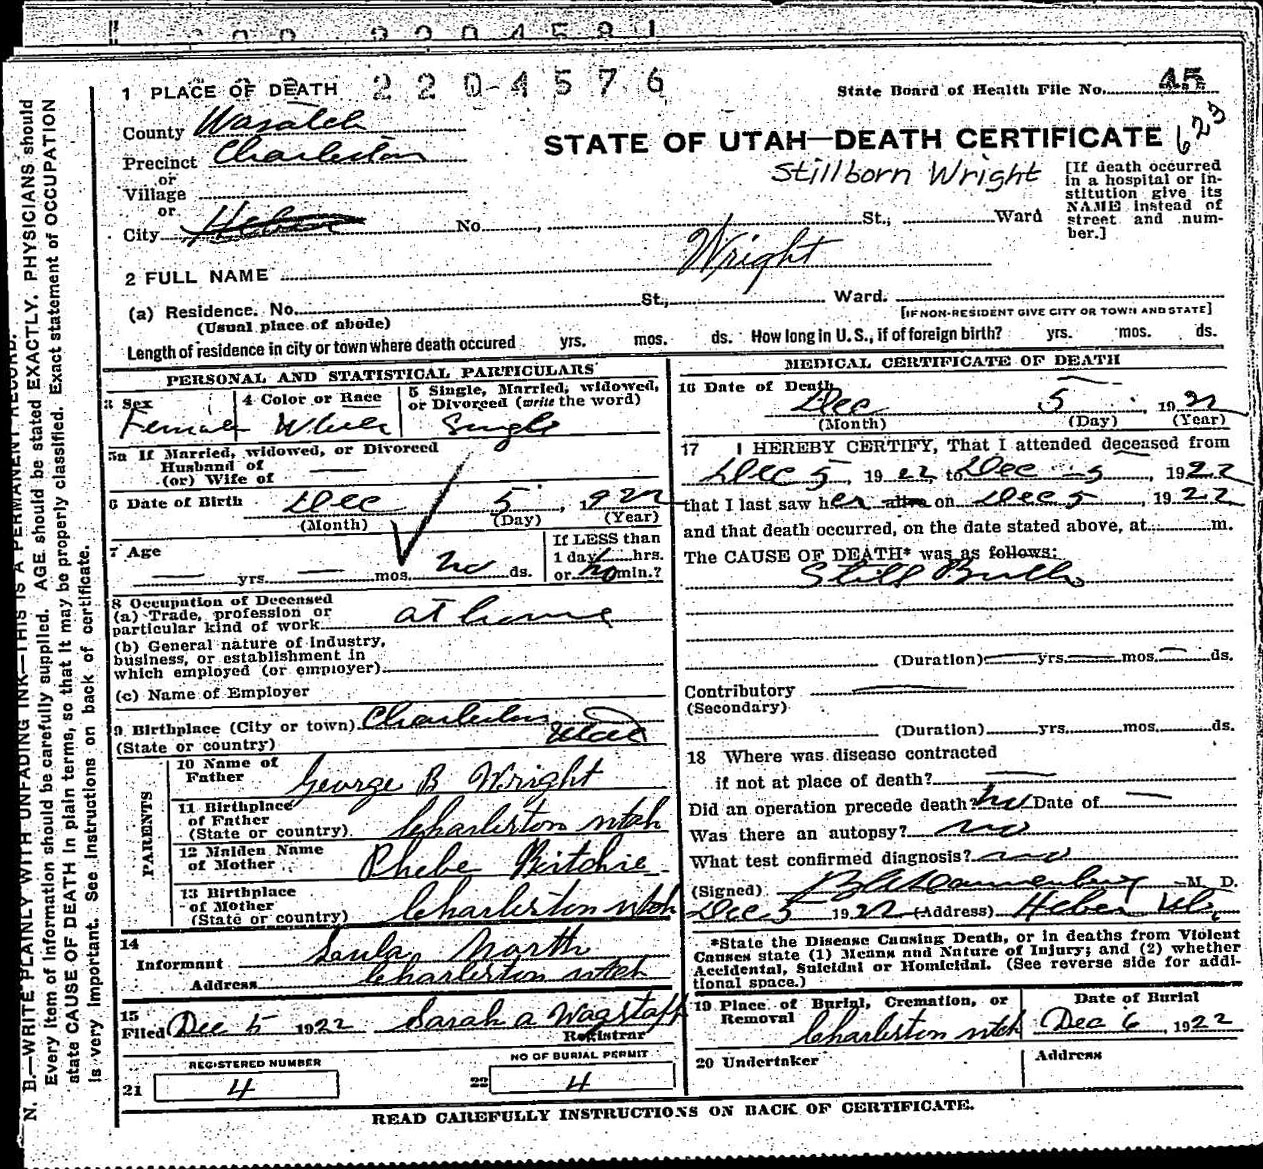 2204581
2204576
1 PLACE OF DEATH
State Board of Health File No. 45
623
County Wasatch
STATE OF UTAH—DEATH CERTIFICATE
Precinct Charleston
Stillborn Wright
or
Village
or
City Heber No. , St., Ward
[If death occurred
in a hospital or in-
stitution give its
NAME instead of
street and num-
ber.]
2 FULL NAME Wright
(a) Residence. No. St., Ward.
(Usual place of abode)
[IF NON-RESIDENT GIVE CITY OR TOWN AND STATE]
Length of residence in city or town where death occured yrs. mos. ds. How long in U. S., if of foreign birth? yrs. mos. ds.
PERSONAL AND STATISTICAL PARTICULARS
3 Sex
Female
4 Color or Race
White
5 Single, Married, widowed,
or Divorced (write the word)
Single
5a If Married, widowed, or Divorced
Husband of
(or) Wife of
6 Date of Birth Dec 5, 1922
(Month) (Day) (Year)
7 Age
— yrs. — mos. no ds.
If LESS than
1 day hrs.
or no min.?
8 Occupation of Deceased
(a) Trade, profession or
particular kind of work at home
(b) General nature of Industry,
business, or establishment in
which employed (or employer)
(c) Name of Employer
9 Birthplace (City or town) Charleston
(State or country) Utah
PARENTS
10 Name of
Father George B Wright
11 Birthplace
of Father
(State or country) Charleston utah
12 Maiden Name
of Mother Phebe Ritchie
13 Birthplace
of Mother
(State or country) Charleston utah
14
Informant North
Address Charleston utah
15
Filed Dec 5 1922 Sarah a Wagstaff
Registrar
REGISTERED NUMBER
21 4
NO OF BURIAL PERMIT
22 4
MEDICAL CERTIFICATE OF DEATH
16 Date of Death
Dec 5, 1922
(Month) (Day) (Year)
17 I HEREBY CERTIFY, That I attended deceased from
Dec 5 1922 to Dec 5, 1922
that I last saw her alive on Dec 5, 1922
and that death occurred, on the date stated above, at m.
The CAUSE OF DEATH* was as follows:
Still Birth
(Duration) yrs. mos. ds.
Contributory
(Secondary)
(Duration) yrs. mos. ds.
18 Where was disease contracted
if not at place of death?
Did an operation precede death? no Date of —
Was there an autopsy? no
What test confirmed diagnosis? no
(Signed) M. D.
Dec 5 1922 (Address) Heber Ut.
*State the Disease Causing Death, or in deaths from Violent
Causes state (1) Means and Nature of Injury; and (2) whether
Accidental, Suicidal or Homicidal. (See reverse side for addi-
tional space.)
19 Place of Burial, Cremation, or
Removal
Charleston utah
Date of Burial
Dec 6, 1922
20 Undertaker
Address
READ CAREFULLY INSTRUCTIONS ON BACK OF CERTIFICATE.
N. B.—WRITE PLAINLY WITH UNFADING INK—THIS IS A PERMANENT RECORD.
Every item of information should be carefully supplied. AGE should be stated EXACTLY. PHYSICIANS should
state CAUSE OF DEATH in plain terms, so that it may be properly classified. Exact statement of OCCUPATION
is very important. See instructions on back of certificate.